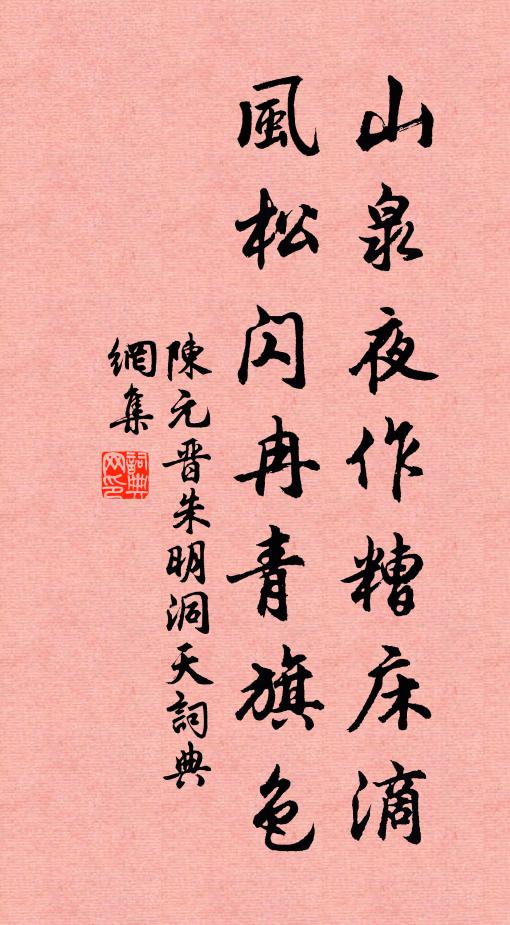 山泉夜作糟床滴
風松閃冉青旗色
陳元晋朱明洞天詞典
網集
詞典
网印